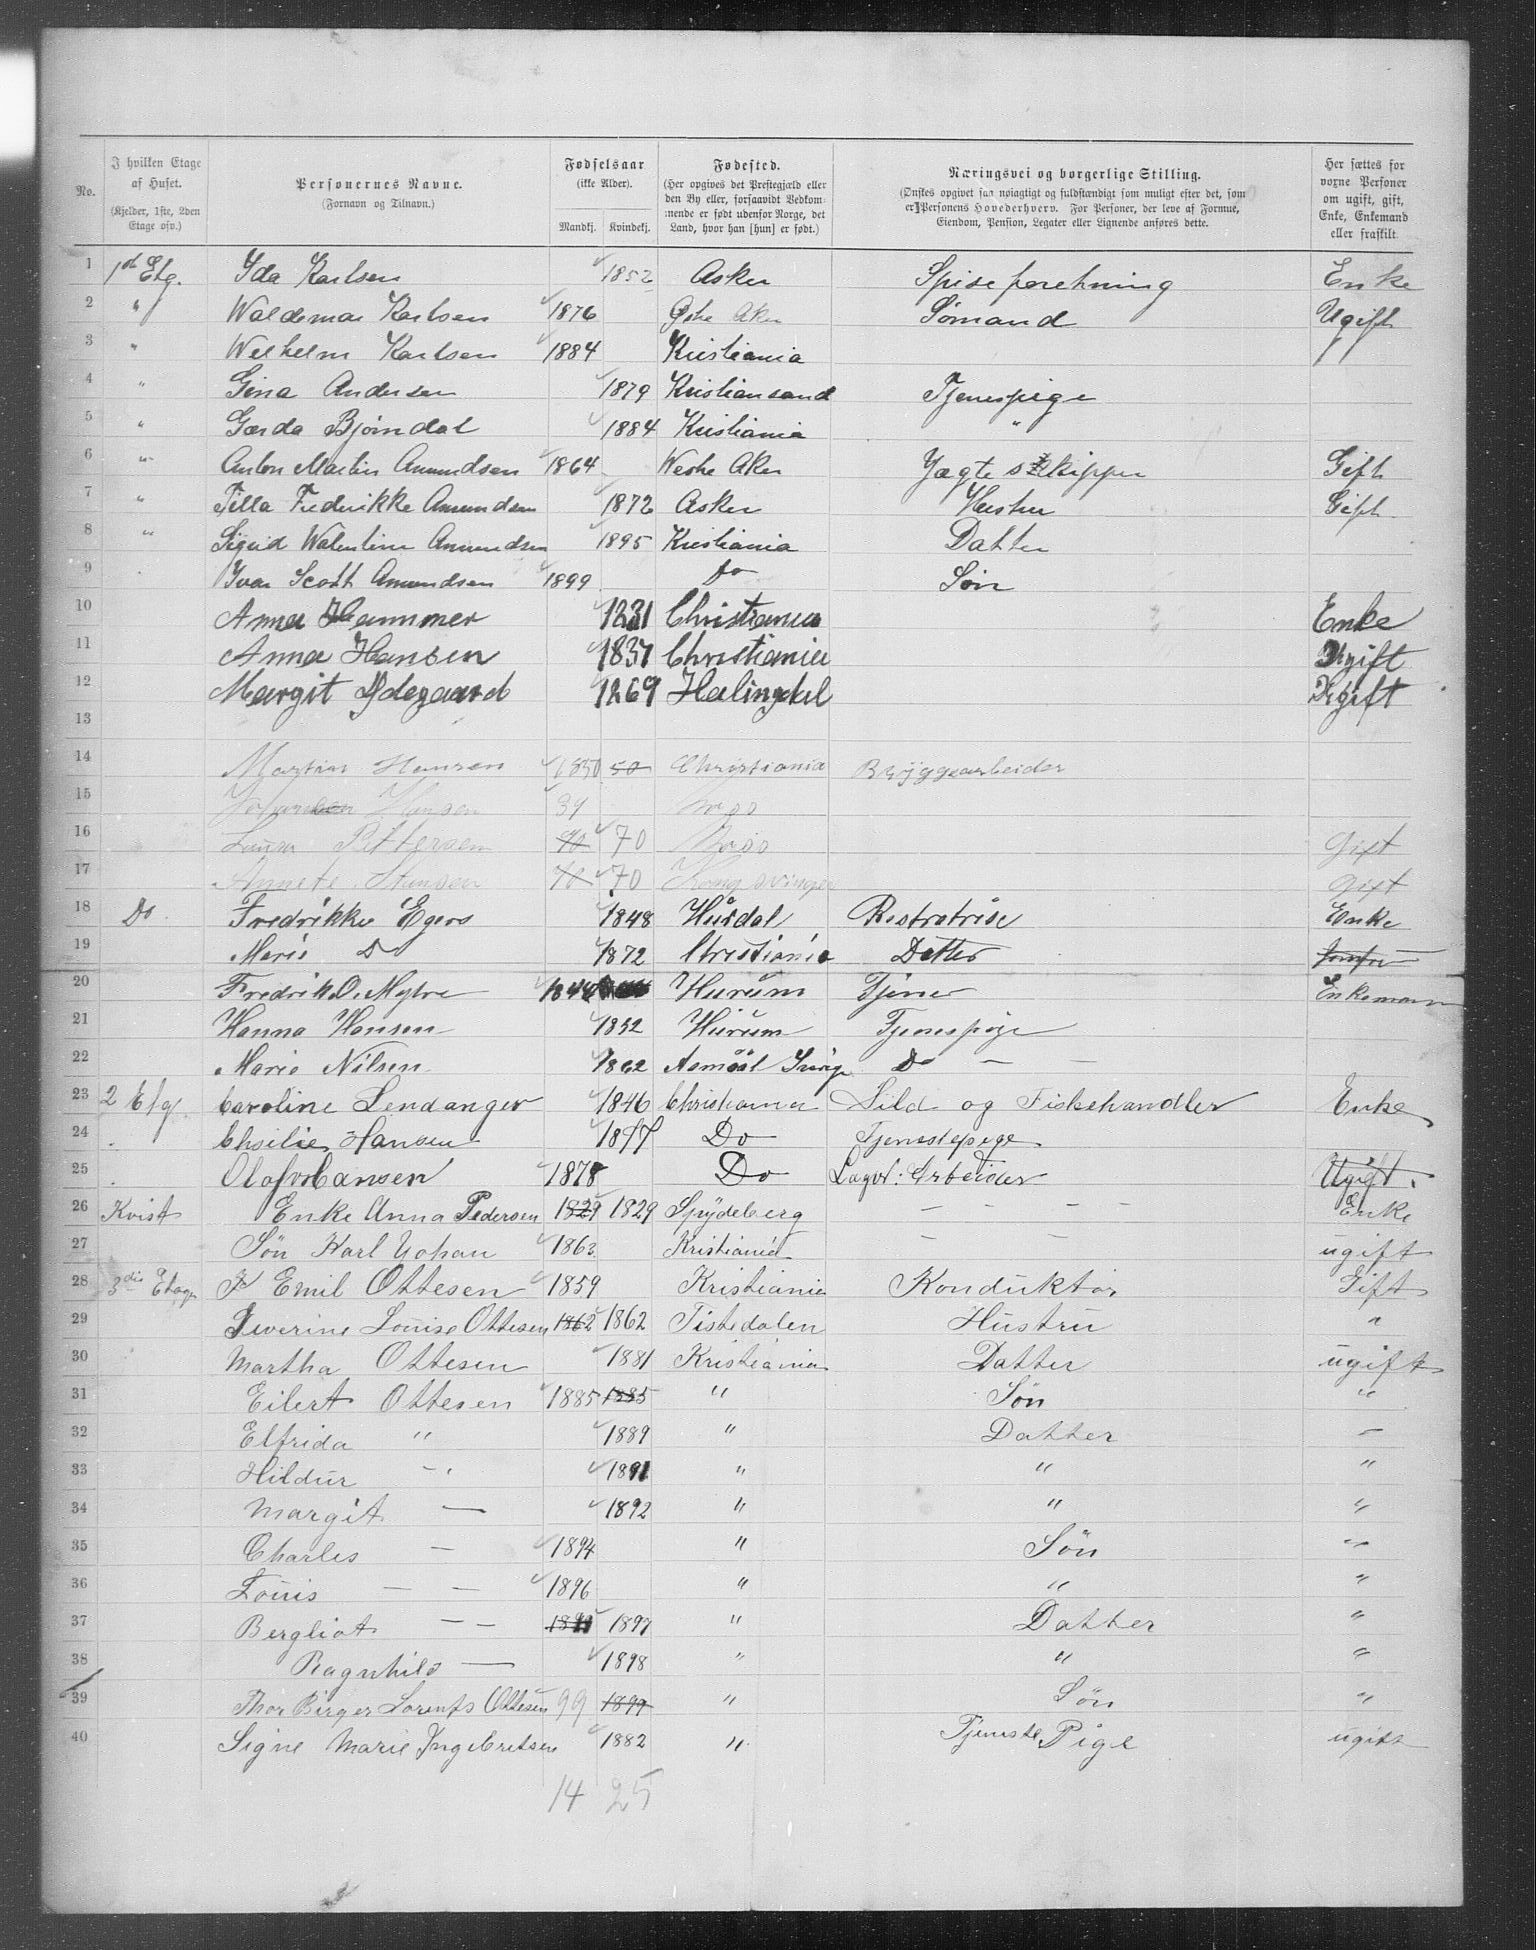 No. | I hvilken Etage af Huset. (Kjelder, 1ste, 2den Etage osv.) | Personernes Navne. (Fornavn og Tilnavn.) | Fødselsaar (ikke Alder). Mandkj. Kvindekj. | Fødested. (Her opgives det Prestegjæld eller den By eller, forsaavidt Vedkommende er født udenfor Norge, det Land, hvor han [hun] er født.) | Næringsvei og borgerlige Stilling. (Ønskes opgivet saa nøiagtigt og fuldstændigt som muligt efter det, som er Personens Hovederhverv. For Personer, der leve af Formue, Eiendom, Pension, Legater eller Lignende anføres dette.) | Her sættes for voxne Personer om ugift, gift, Enke, Enkemand eller fraskilt.
1 1st Etg. Ida Karlsen 1852 Asker Spiseforretning Enke
2 " Waldemar Karlsen 1876 Østre Aker Sømand Ugift
3 " Welhelm Karlsen 1884 Kristiania
4 " Gina Andersen 1879 Kristiansand Tjenespige
5 " Gerda Bjørndal 1884 Kristiania "
6 " Anton Martin Amundsen 1864 Westre Aker Jægteskipper Gift
7 " Tilla Frederikke Amundsen 1872 Asker Hustru Gift
8 " Sigrid Walentine Amundsen 1895 Kristiania Datter
9 Ivar Scott Amundsen 1899 Do Søn
10 Anna Hammer 1831 Christiania Enke
11 Anna Hansen 1837 Christiania Ugift
12 Margit Ødegaard 1869 Halingdal Ugift
13
14 Martin Hansen 1850 50 Christiania Bryggearbeider
15 Hansen 39 Moss
16 Laura Pettersen 70 70 Moss Gift
17 Annete Hansen 70 70 Kongsvinger gift
18 Do Fredrikke Egers 1848 Hurdal Restratrise Enke
19 Marie Do 1872 Christiania Datter
20 Fredrik O. Myhre 1844 Hurum Tjener Enkemann
21 Hanna Hansen 1832 Hurum Tjenespige
22 Marie Nilsen 1862 Do —
23 2 Etg. Caroline Lendanger 1846 Christiania Sild og Fiskehandler Enke
24 . Hansen 1877 Do Tjenestepige
25 . Olaf Hansen 1878 Do Lager: Arbeider Ugift.
26 Kvist Enke Anna Pedersen 1829 1829 Spydeberg — — — — Enke
27 Søn Karl Johan 1863 Kristiania — — ugift
28 3die Etage F Emil Ottesen 1859 Kristiania Konduktør Gift
29 Severine Louise Ottesen 1862 1862 Tistedalen Hustru "
30 Martha Ottesen 1881 Kristiania Datter ugift
31 Eilert Ottesen 1885 1885 " Søn "
32 Elfrida " 1889 " Datter —
33 Hildur —" 1891 " " "
34 Margit — 1892 " " "
35 Charles — 1894 " Søn "
36 Louis — — 1896 " " "
37 Bergliot — — 1897 1897 " Datter "
38 Ragnhild — 1898 " " "
39 Thor Birger Lorents Ottesen 99 1899 " Søn "
40 Signe Marie Ingebretsen 1882 " Tjeneste Pige ugift
14 25